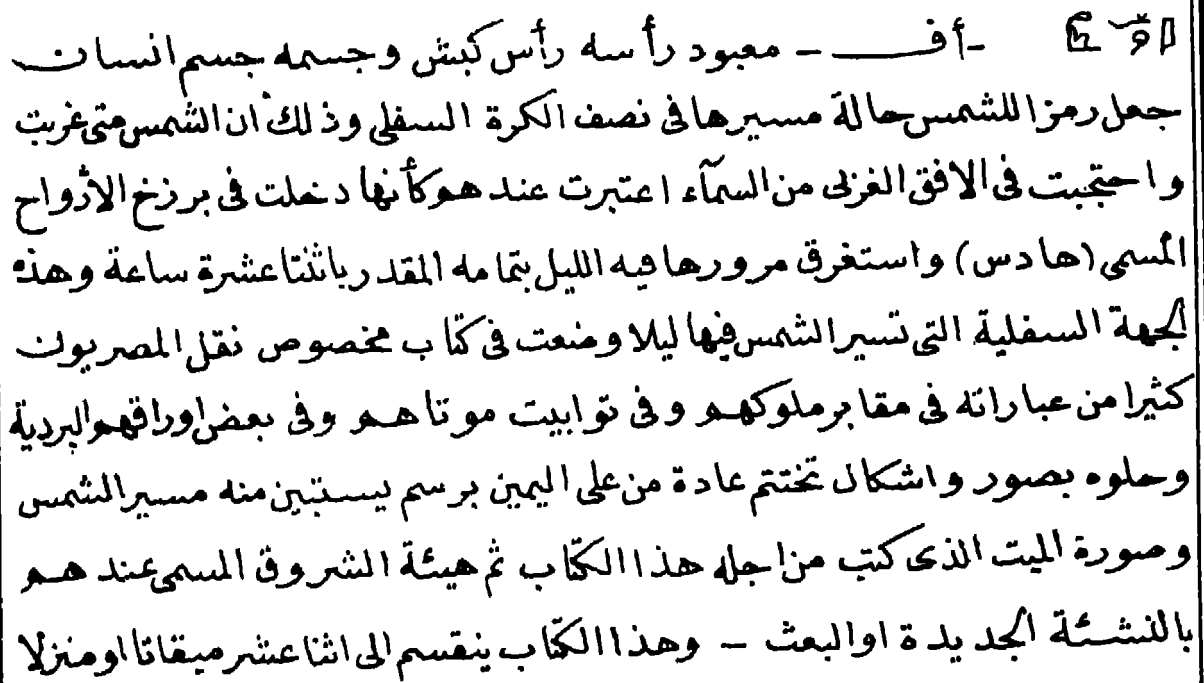 -أف - معبود رأسه رأس كبش وجسمه جسم انسان
جعل رمزا للشمس حالة مسيرها فى نصف الكرة السفلى وذلك ان الشمس متى غربت
واحتجبت فى الافق الغربى من السمآء اعتبرت عندهم كأنها دخلت فى برزخ الأرواح
المسمى (هادس) واستغرق مرورها فيه الليل بتمامه المقدر باثنتا عشرة ساعة وهذه
الجهة السفلية التى تسير الشمس فيها ليلا وضعت فى كتاب مخصوص نقل المصريون
كثيرا من عباراته فى مقابر ملوكهم وفى توابيت موتاهم وفى بعض اوراقهم البردية
وحلوه بصور واشكال تختتم عادة من على اليمين برسم يستبين منه مسير الشمس
وصورة الميت الذى كتب من اجله هذا الكتاب ثم هيئة الشروق المسمى عندهم
بالنشئة الجديدة او البعث - وهذا الكتاب ينقسم الى اثنا عشر ميقاتا او منزلا